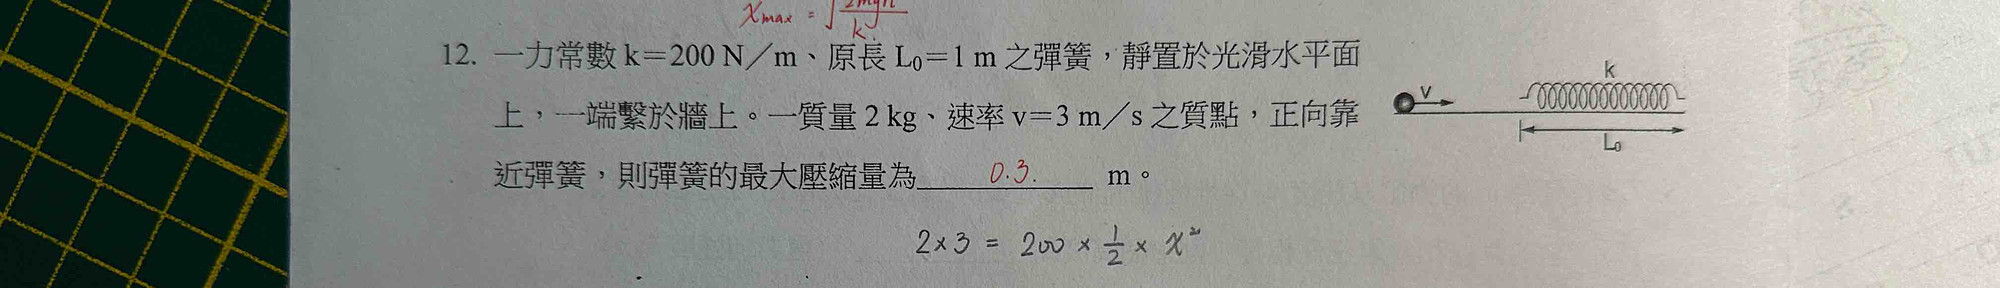 x max = √ 2mgh / k
12. 一力常數 k＝200 N／m、原長 L₀＝1 m 之彈簧，靜置於光滑水平面
上，一端繫於牆上。一質量 2 kg、速率 v＝3 m／s 之質點，正向靠
近彈簧，則彈簧的最大壓縮量為 0.3. m。
k
v
L₀
2×3 = 200 × 1/2 × x²